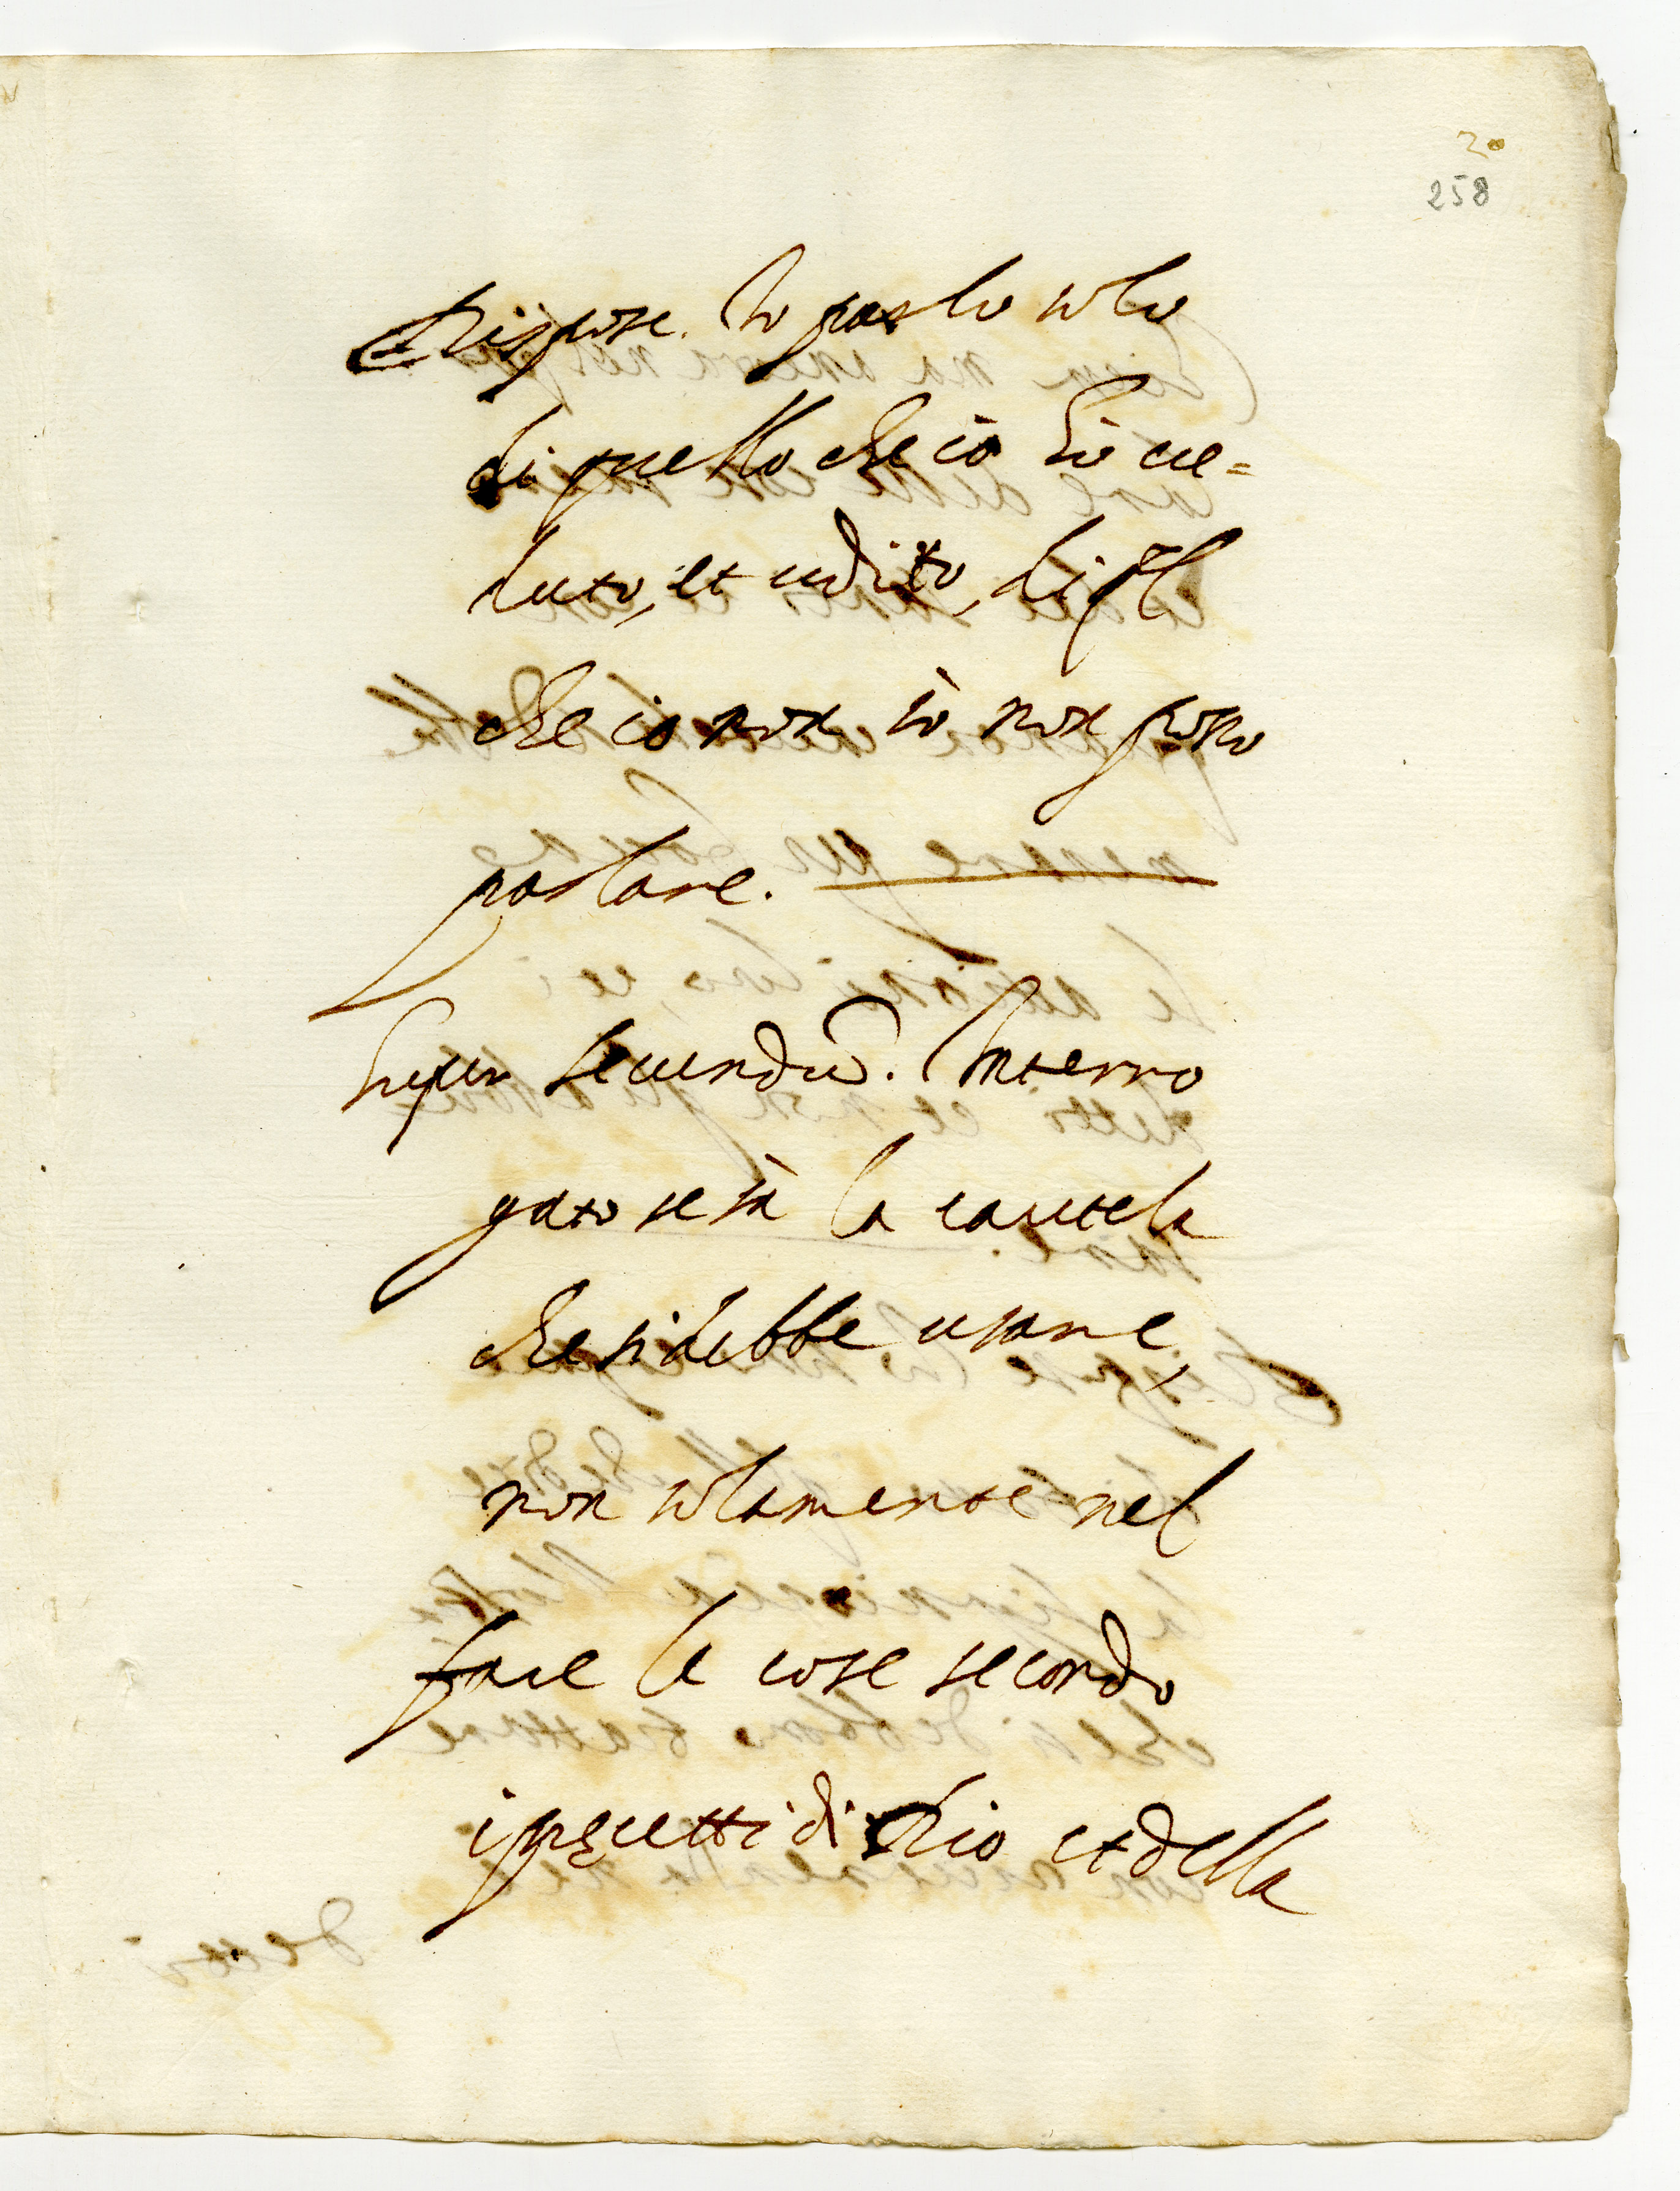 20
258
Rispose. Io parlo solo
di quello che io hò ue=
duto, et udito, di ql
che io non sò non posso
parlare.
Super secundũ. Interro
gato se sà la cautela
che si debbe usare,
non solamente nel
fare le cose secondo
i precetti di Dio et della